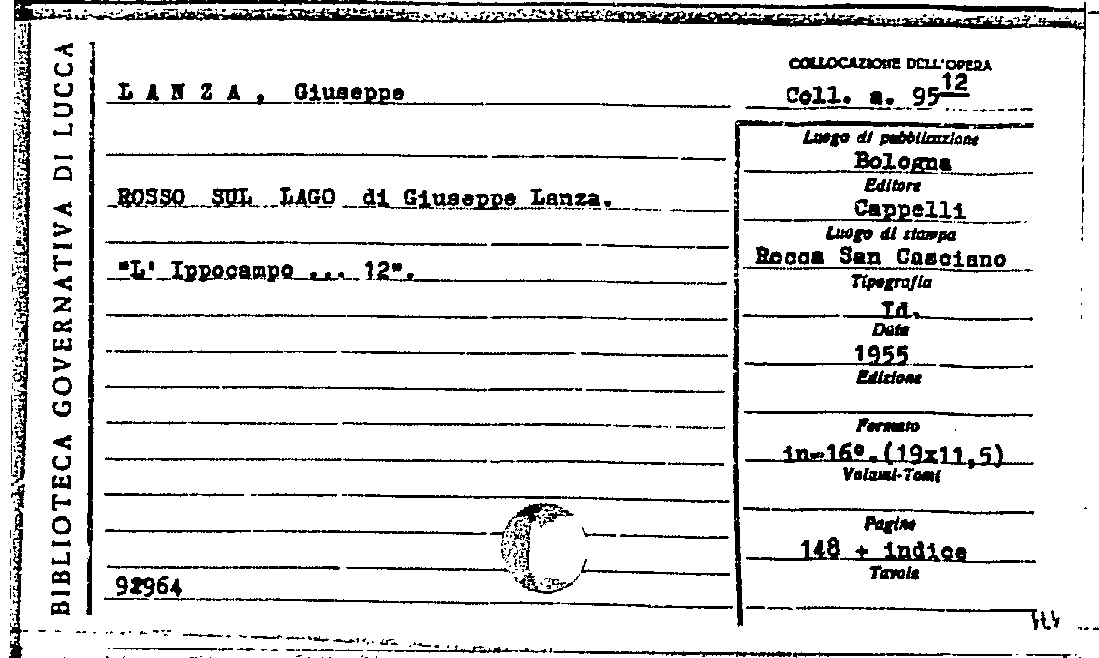 BIBLIOTECA GOVERNATIVA DI LUCCA
L A N Z A , Giuseppe
ROSSO SUL LAGO di Giuseppe Lanza.
"L' Ippocampo ... 12".
92964
COLLOCAZIONE DELL'OPERA
Coll. a. 95 12
Luogo di pubblicazione
Bologna
Editore
Cappelli
Luogo di stampa
Rocca San Casciano
Tipografia
Id.
Data
1955
Edizione
Formato
in-16°.(19x11,5)
Volumi-Tomi
Pagine
148 + indice
Tavole